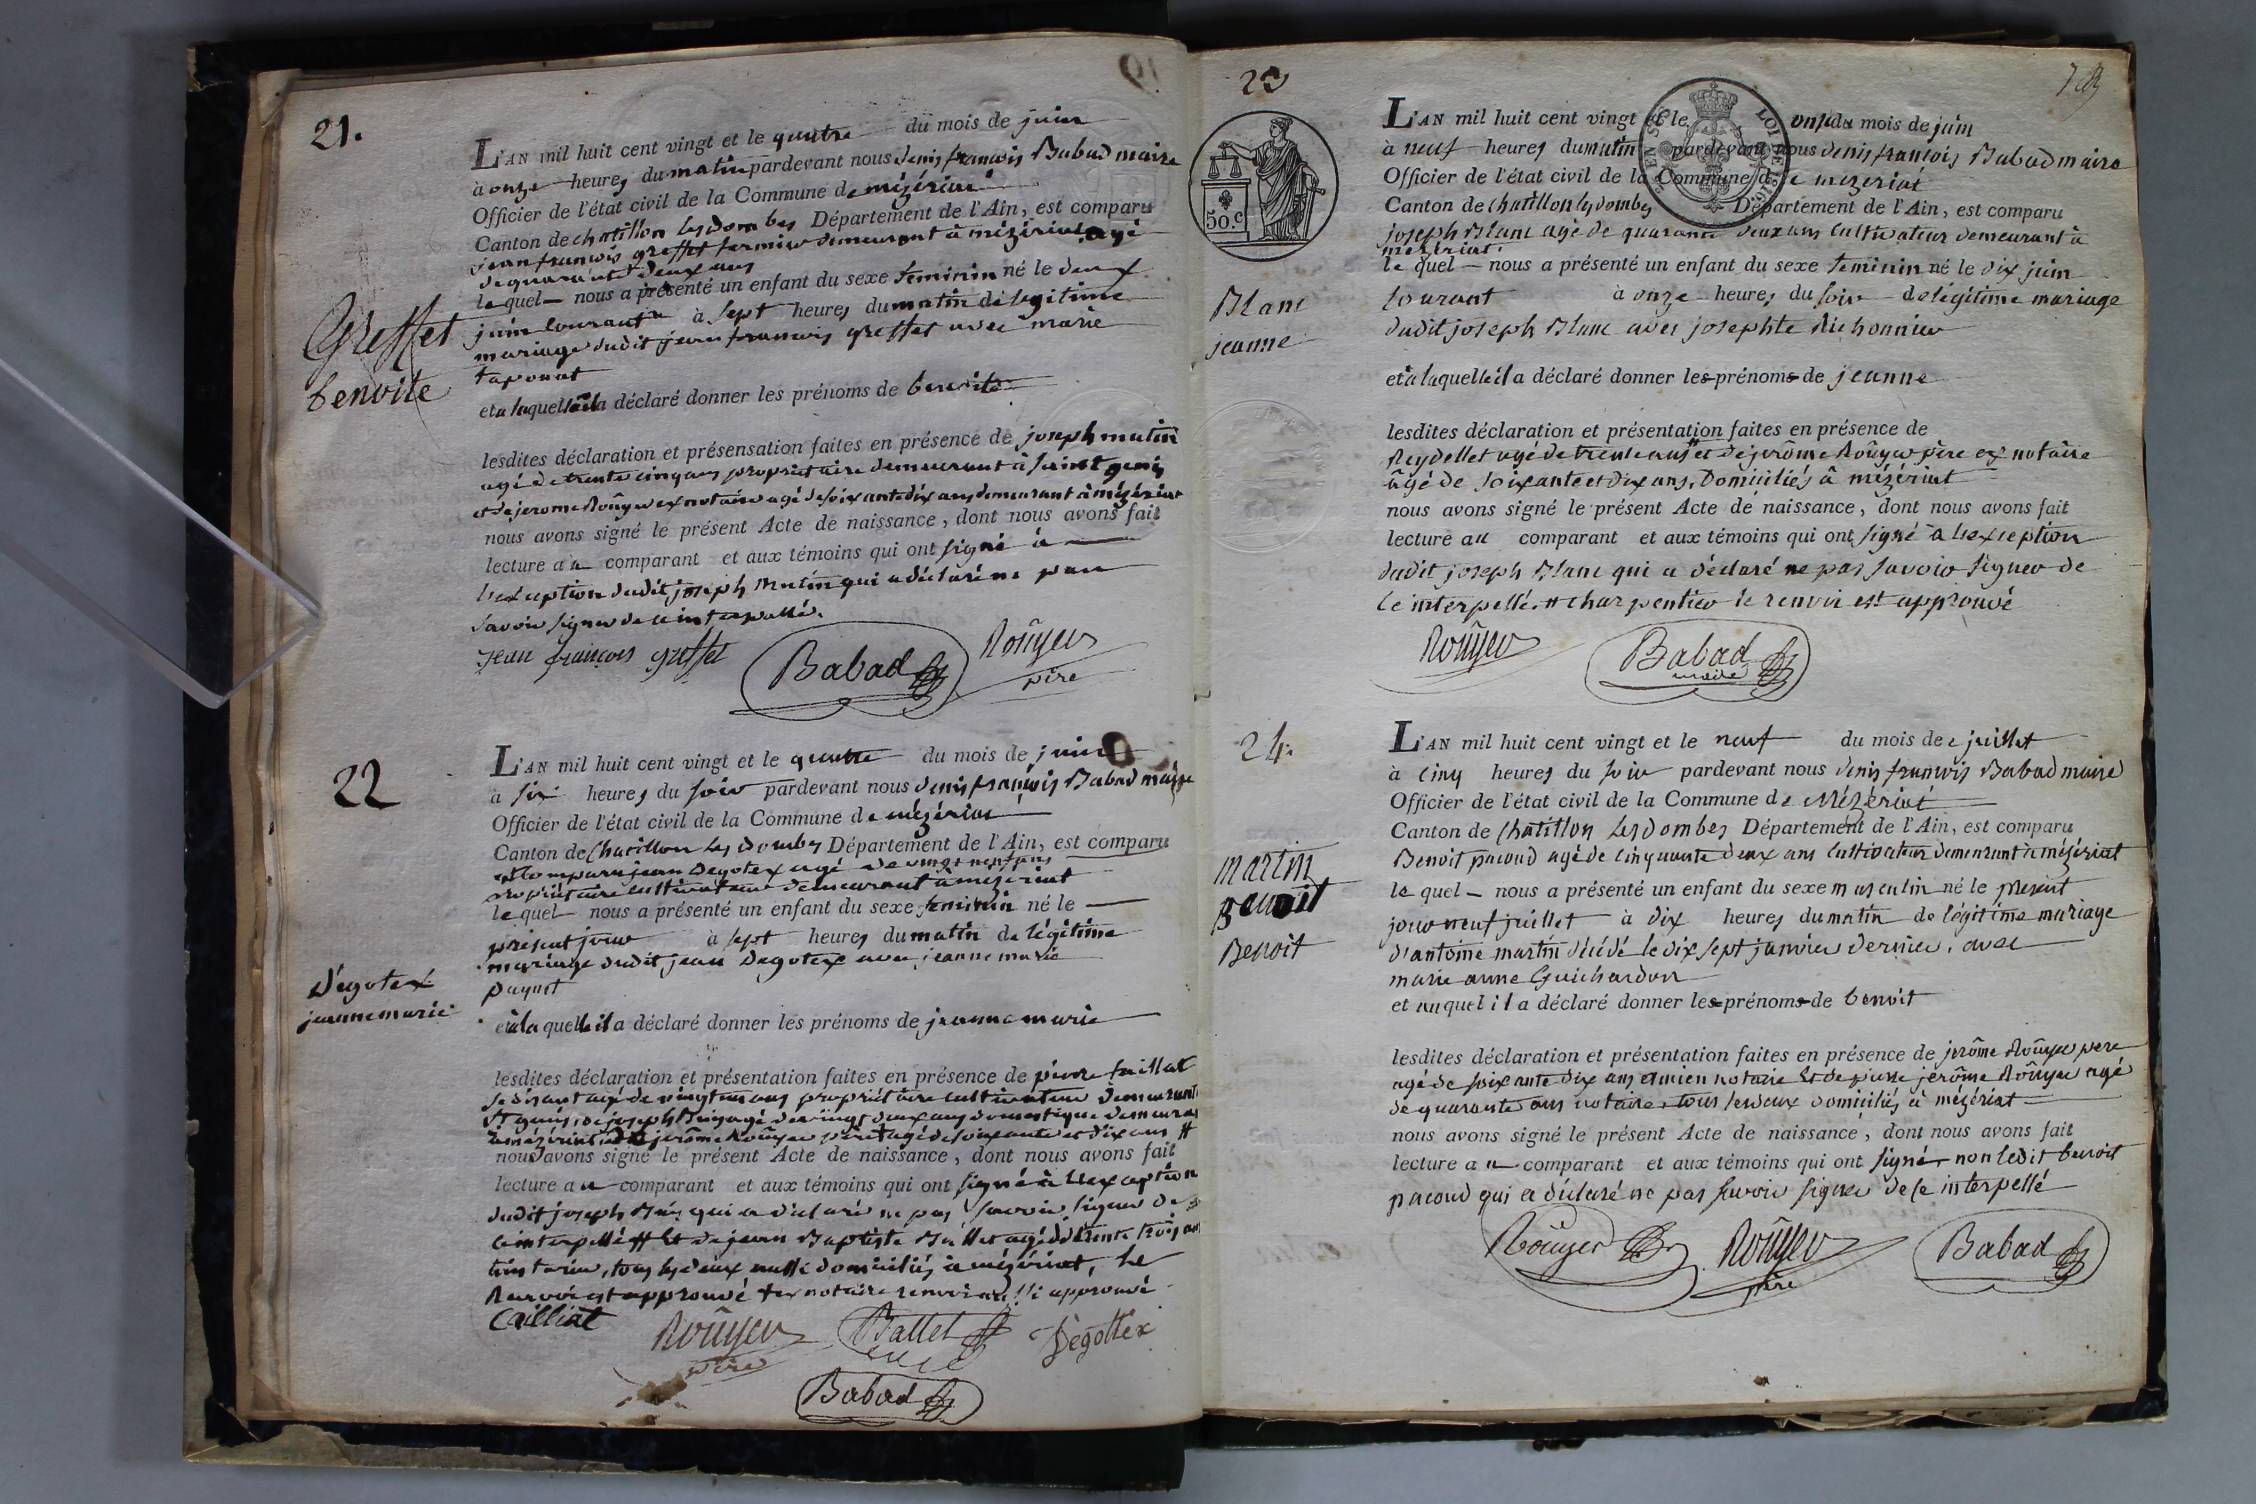 21.
L'AN mil huit cent vingt et le quatre du mois de juin
à onze heures du matin pardevant nous denis françois Babad maire
Officier de l'état civil de la Commune de mézériat
Canton de chatillon les dombes Département de l'Ain, est comparu
jean françois greffet fermier demeurant à mézériat agé
de quarante deux ans
le quel nous a présenté un enfant du sexe feminin né le deux
juin courant à sept heures du matin de legitime
mariage dudit jean françois greffet avec marie
taponat
Greffet
benoite
et a laquelle il a déclaré donner les prénoms de benoite
lesdites déclaration et présensation faites en présence de joseph mutin
agé de trente cinq ans propriétaire demeurant à saint genis
et de jerome Roûyer ex notaire agé de soixante dix ans demeurant à mézériat
nous avons signé le présent Acte de naissance, dont nous avons fait
lecture au comparant et aux témoins qui ont signé à
l'exception dudit joseph Mutin qui a déclaré ne pas
savoir signer de ce interpellé.
Jean françois greffet Babad Roûyer
père
22
L'AN mil huit cent vingt et le quatre du mois de juin
à six heures du soir pardevant nous denis françois Babad maire
Officier de l'état civil de la Commune de mézériat
Canton de Chatillon les Dombes Département de l'Ain, est comparu
est comparu jean Degotex agé de vingt neuf ans
propriétaire cultivateur demeurant à mézériat
le quel nous a présenté un enfant du sexe feminin né le
présent jour à sept heures du matin de légitime
mariage dudit jean Degotex avec jeanne marie
paquet
Dégotex
jeanne marie
et à la quelle il a déclaré donner les prénoms de jeanne marie
lesdites déclaration et présentation faites en présence de pierre
se disant agé de vingt ans propriétaire cultivateur demeurant
St genis, de joseph agé de vingt deux ans domestique demeurant
à mézériat, jerôme Roûyer père † agé de soixante et dix ans #
nous avons signé le présent Acte de naissance, dont nous avons fait
lecture au comparant et aux témoins qui ont signé à l'exception
dudit joseph qui a déclaré ne pas savoir signer de
ce interpellé # Et de jean Baptiste agé de trente trois ans
tous les deux aussi domiciliés à mézériat, le
Renvoi est approuvé † ex notaire renvoi aussi approuvé
Cailliat Roûyer Degottex
père
Babad
23
L'AN mil huit cent vingt et le onze du mois de juin
à neuf heures du matin pardevant nous denis françois Babad maire
Officier de l'état civil de la Commune de mezeriat
Canton de chatillon les dombes Département de l'Ain, est comparu
joseph Blanc agé de quarante deux ans Cultivateur demeurant à
mezeriat.
50.c
LOI DE 1816
le quel nous a présenté un enfant du sexe feminin né le dix juin
courant à onze heures du soir de légitime mariage
dudit joseph Blanc avec josephte Richonnier
Blanc
jeanne
et à laquelle il a déclaré donner les prénoms de jeanne
lesdites déclaration et présentation faites en présence de
Reydellet agé de trente ans # et de jérôme Roûyer père ex notaire
âgé de soixante et dix ans, Domiciliés à mézériat
nous avons signé le présent Acte de naissance, dont nous avons fait
lecture au comparant et aux témoins qui ont signé à l'exception
dudit joseph Blanc qui a déclaré ne pas savoir signer de
ce interpellé. # charpentier le renvoi est approuvé
Roûyer Babad
maire
24.
L'AN mil huit cent vingt et le neuf du mois de juillet
à cinq heures du soir pardevant nous denis françois Babad maire
Officier de l'état civil de la Commune de Mézériat
Canton de Chatillon Les Dombes Département de l'Ain, est comparu
Benoit pacoud agé de cinquante deux ans cultivateur demeurant à mézériat
le quel nous a présenté un enfant du sexe masculin né le présent
jour neuf juillet à dix heures du matin de légitime mariage
d'antoine martin décédé le dix sept janvier dernier, avec
marie anne Guichardon
martin
Benoit
Benoit
et auquel il a déclaré donner les prénoms de benoit
lesdites déclaration et présentation faites en présence de jerôme Roûyer père
agé de soixante dix ans ancien notaire Et de pierre jerôme Roûyer agé
de quarante ans notaire, tous les deux domiciliés à mézériat
nous avons signé le présent Acte de naissance, dont nous avons fait
lecture au comparant et aux témoins qui ont signé, non ledit benoit
pacoud qui a déclaré ne pas savoir signer de ce interpellé
Roûyer Roûyer Babad
père